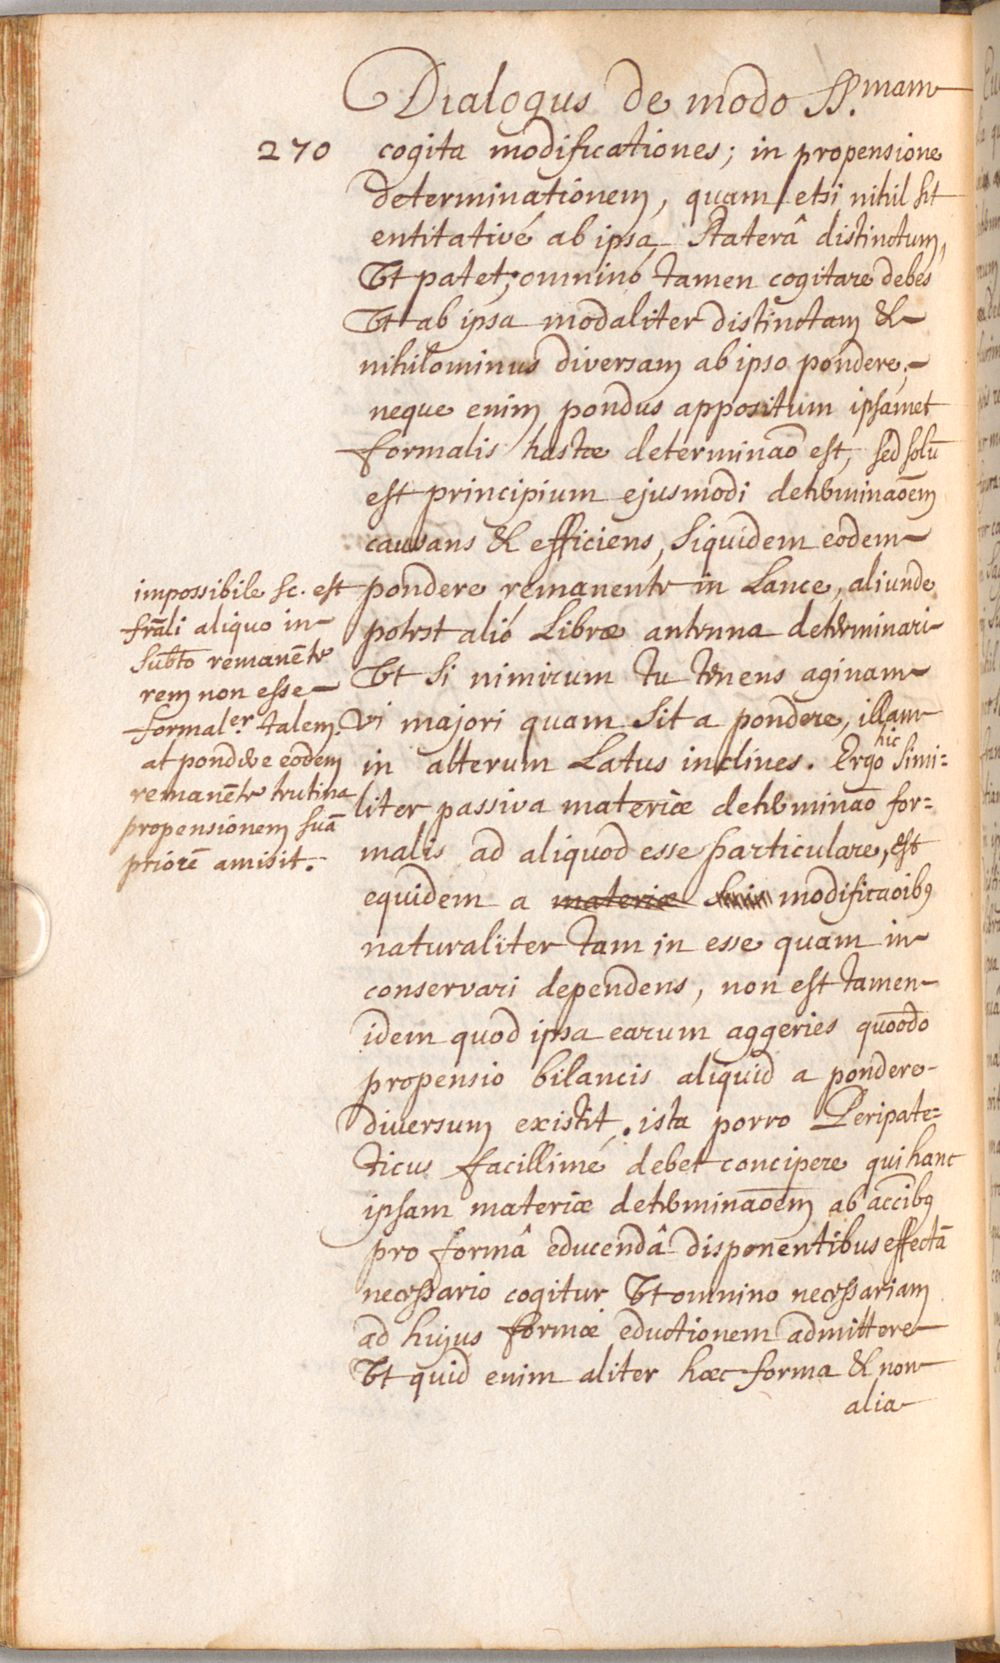 Dialogus de modo SS.mam
270 cogita modificationes; in propensione
determinationem, quam etsi nihil sit
entitativé ab ipsa Staterâ distinctum,
Ut patet; omninó tamen cogitare debes
Ut ab ipsa modaliter distinctam &
nihilominus diversam ab ipso pondere;
neque enim pondus appositum ipsamet
formalis hastæ determinaõ est, sed solũ
est principium ejusmodi determinaõem
causans & efficiens, siquidem eodem
pondere remanente in Lance, aliunde
potest alió Libræ antenna determinari
Ut si nimirum tu tenens aginam
vi majori quam sit a pondere, illam
in alterum Latus inclines. Ergo hic simi=
liter passiva materiæ determinaõ for=
malis ad aliquod esse particulare, est
equidem a materiæ modificaõibꝯ
naturaliter tam in esse quam in
conservari dependens, non est tamen
idem quod ipsa earum aggeries quõodo
propensio bilancis aliquid a pondere
diversum existit. ista porro Peripate=
ticus facillimé debet concipere qui hanc
ipsam materiæ determinaõem ab acc̄ibꝯ
pro formâ educendâ disponentibus effectã
necessario cogitur Ut omnino necessariam
ad hujus formæ eductionem admittere
Ut quid enim aliter hæc forma & non
alia
impossibile sc. est
fr̄ali aliquo in
Subt̄o remanẽte
rem non esse
formal.er talem.
at pondere eodem
remanẽte trutina
propensionem suã
priorẽ amisit.